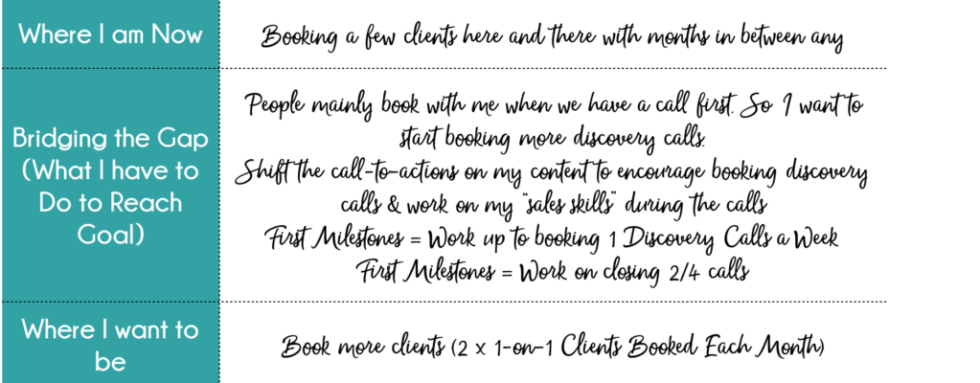 Where I am Now
Booking a few clients here and there with months in between any
Bridging the Gap
(What I have to
Do to Reach
Goal)
People mainly book with me when we have a call first. So I want to
start booking more discovery calls.
Shift the call-to-actions on my content to encourage booking discovery
calls & work on my "sales skills" during the calls
First Milestones = Work up to booking 1 Discovery Calls a Week
First Milestones = Work on closing 2/4 calls
Where I want to
be
Book more clients (2 x 1-on-1 Clients Booked Each Month)